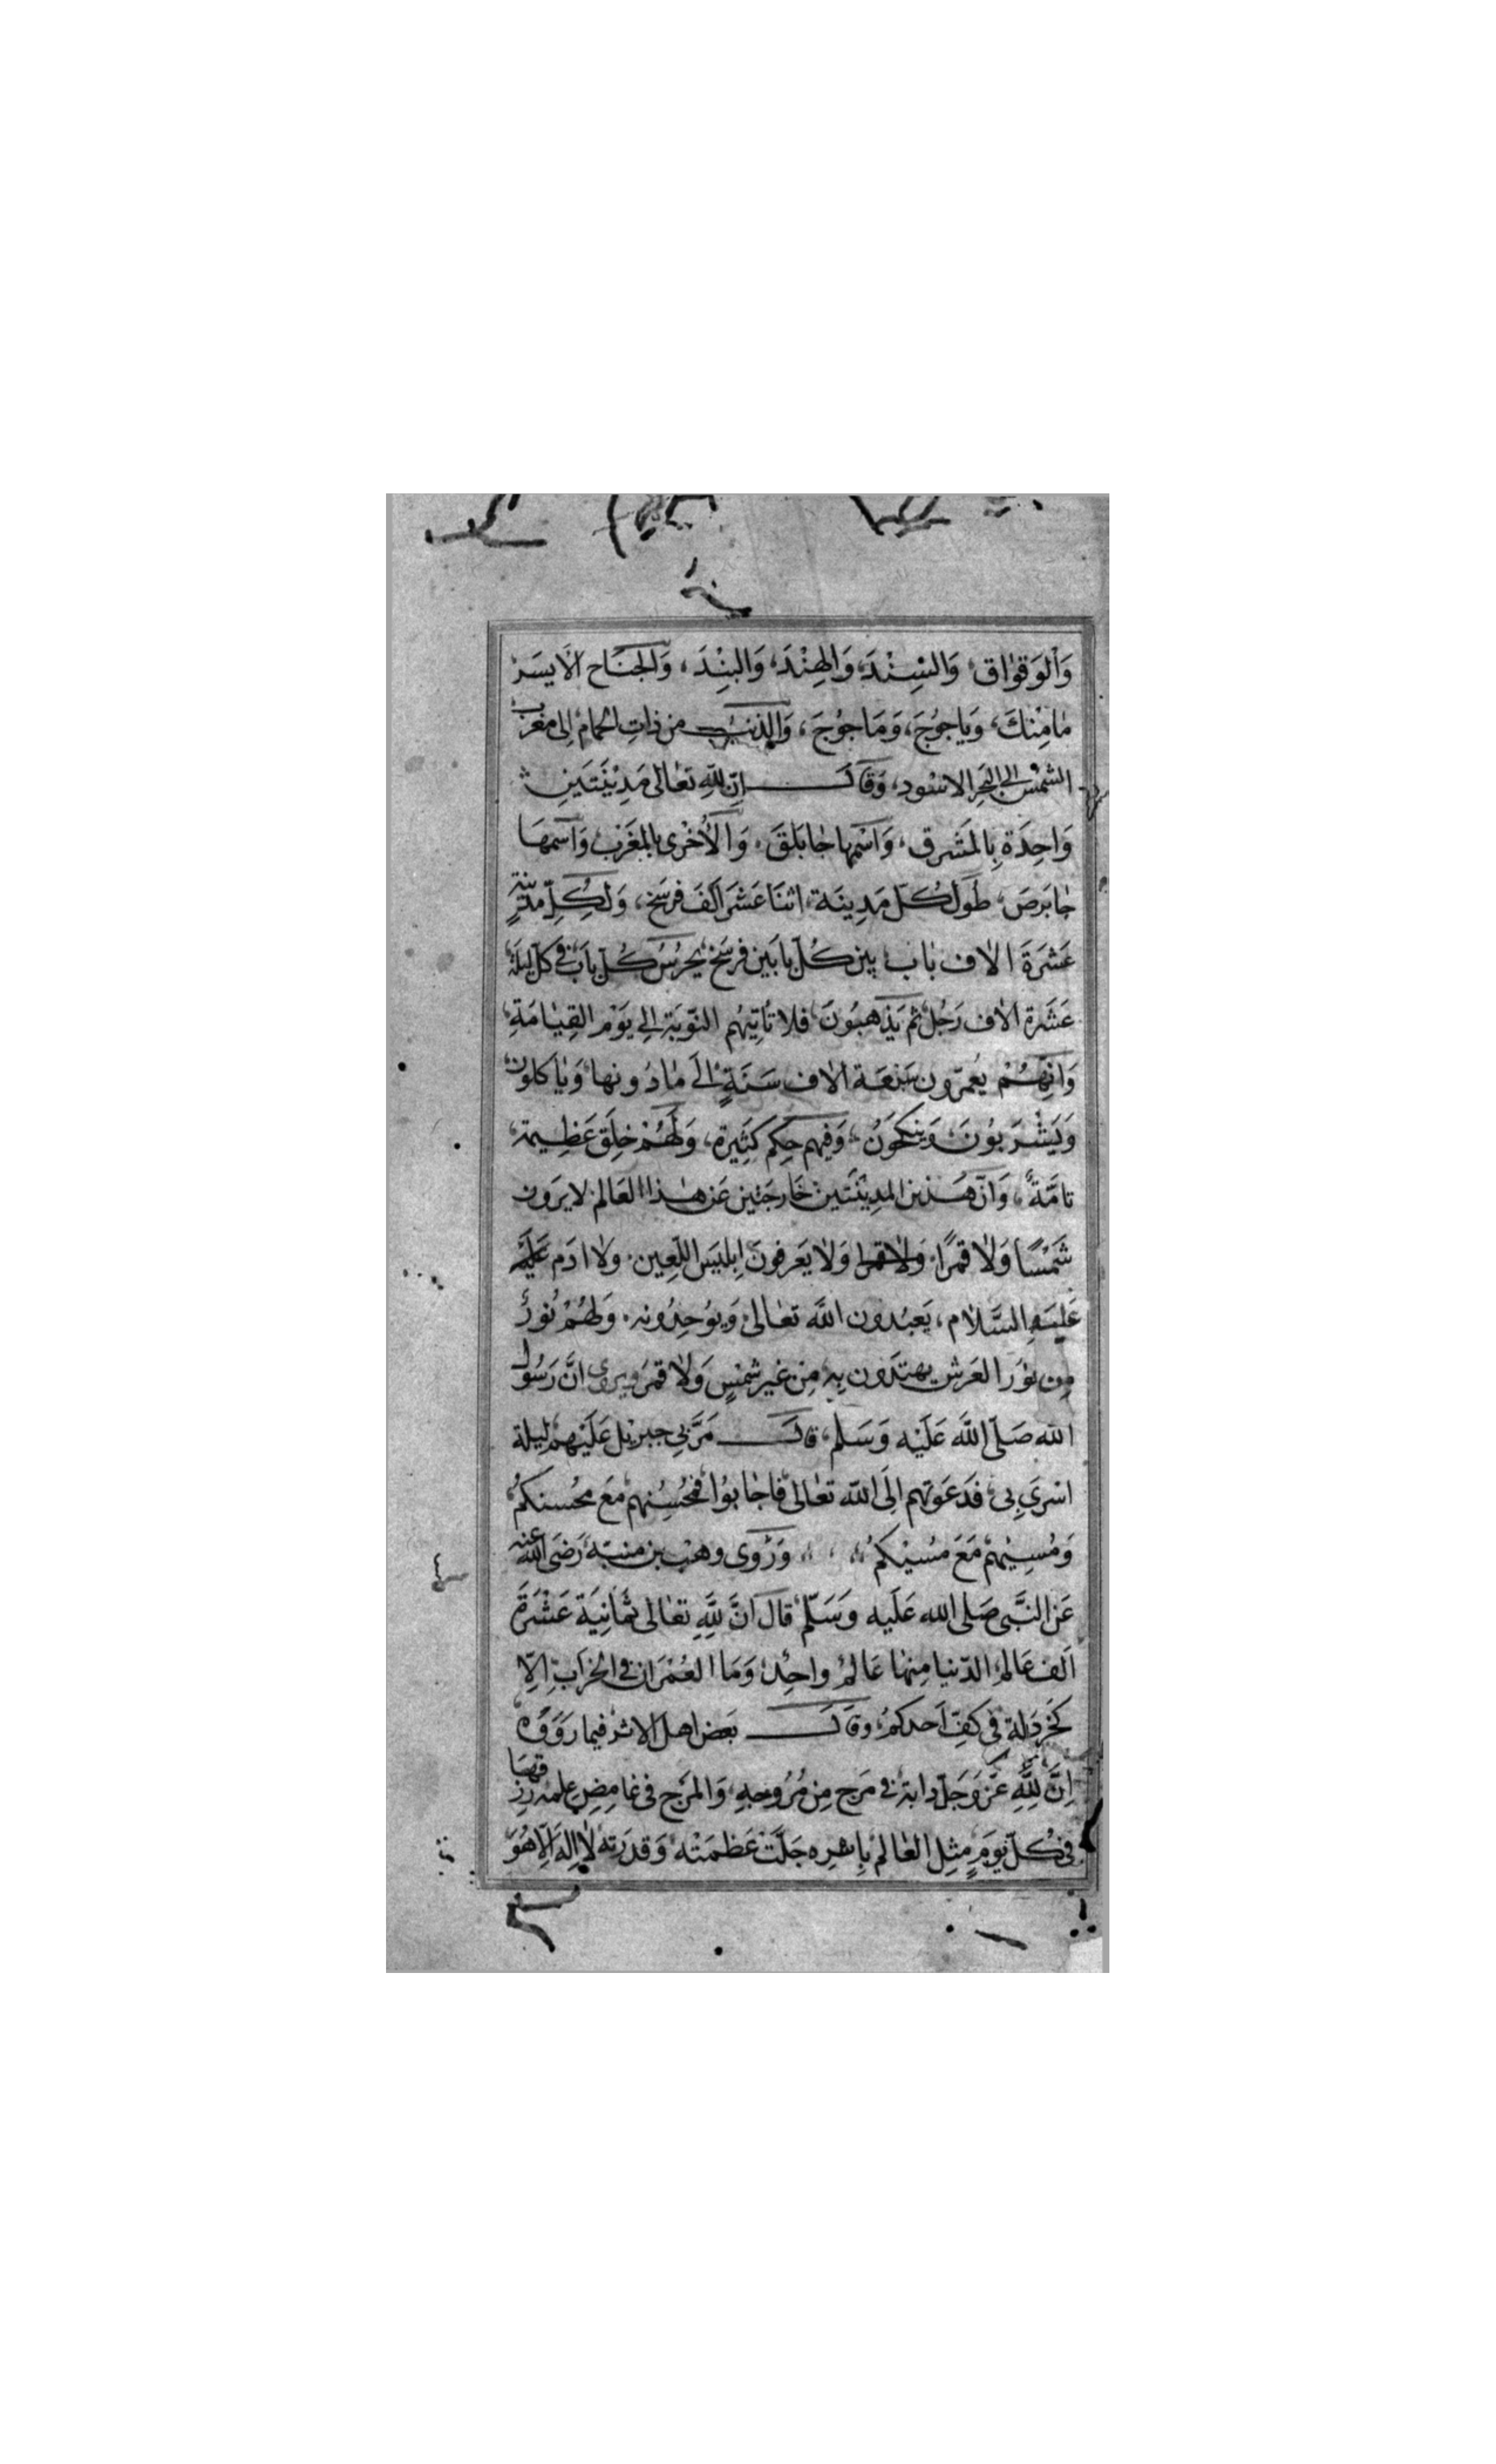 وَالوَقوَاق، وَالسِّنْدَ، وَالهِنْدَ، وَالبَنْدَ، وَالجَنَاح الاَيسَرْ
مَامِنْكَ، وَيَاجوُجَ، وَمَاجوُجَ، وَالذنَب من ذاتِ الحمام، اِلى مغرب
الشمْس الى البَحرِ الاسْود، وَقَالَ اِنّ للهِ تعَالى مَدِيْنَتَينِ
وَاحِدَة بِالمَشرق، وَاسْمها جَابَلقَ، وَالاُخْرى بالمَغرَب وَاسمهَا
جَابَرصَ، طوَل كُلّ مَدِينَة، اثنَا عَشَر الَفَ فرسَخ، وَلِكُلِّ مدينةٍ
عَشرَةَ الاف بَاب، بين كُلّ بابَين فرسَخ، يحرُسُ كُلّ بَاب فى كل ليلَة
عَشَرة الاف رَجُل ثم يَذهبُونَ، فلا تاتِيهُم النّوبَة الى يَوْم القِيَامَةِ
وَانّهُمْ يُعمّرون سَبعَة الاف سَنَةٍ الىَ مَا دُونها، وَيَاكلون
وَيَشْرَبوُنَ، وَيَنكحُونُ، وَفيهم حِكم كَثِيرة، وَلَهُمْ خِلَق عَظِيمة،
تامَّةً، وَانّ هَذين المدِينَتَين خَارجَتين عَن هٰذا العَالم لا يرَون
شَمْسًا وَلَا قمرًا، ولا قمرا وَلا يَعرفونَ اِبليسَ اللّعِين، وَلا ادَم عَليْه
عَليَهِ السَّلام، يَعبُدون اللَّه تعَالى، وَيوُحِدُونه، وَلهُمْ نُورٌ
مِن نوُر العَرش يهتَدون بِه مِن غير شمْسٍ وَلا قمرَ ويروى انَّ رَسُول
الله صَلّى اللَّه عَلَيْه وَسَلم، قالَ مَرَّ بى جبريْل عَلَيْهم ليلة
اسْرىَ بى، فدَعَوتهم الِىَ اللّه تعَالى فاجَابوُا، فمحُسِنهم مَعَ محُسنكمُ،
وَمُسِيئهمْ مَعَ مُسيئكمُ، وَرَوى وهب بن منبّه رَضىَ الله عنه
عَن النَّبى صَلى الله عَلَيه وَسَلّم، قالَ انَّ للَّهِ تعَالى ثمَانِيَة عَشْرَةَ
الَف عَالم، الدّنيا مِنهَا عَالم واحِد، وَمَا العُمْرَان فى الخرَاب اِلّا
كخردَلة فى كفِّ اَحدكمُ، وقالَ بَعض اهل الاثر فيما رَوَوه
اِنَّ للَّهِ عَزّ وَجَلّ دابة، فى مَرج مِن مُرُوجهِ، وَالمَرج فى غامِضِ علمه، رزقهَا
فى كُلّ يوَمٍ مِثل العَالم باسره جَلّتَ عَظَمَتْه، وَقدرَته لا اِله اِلّا هُوَ